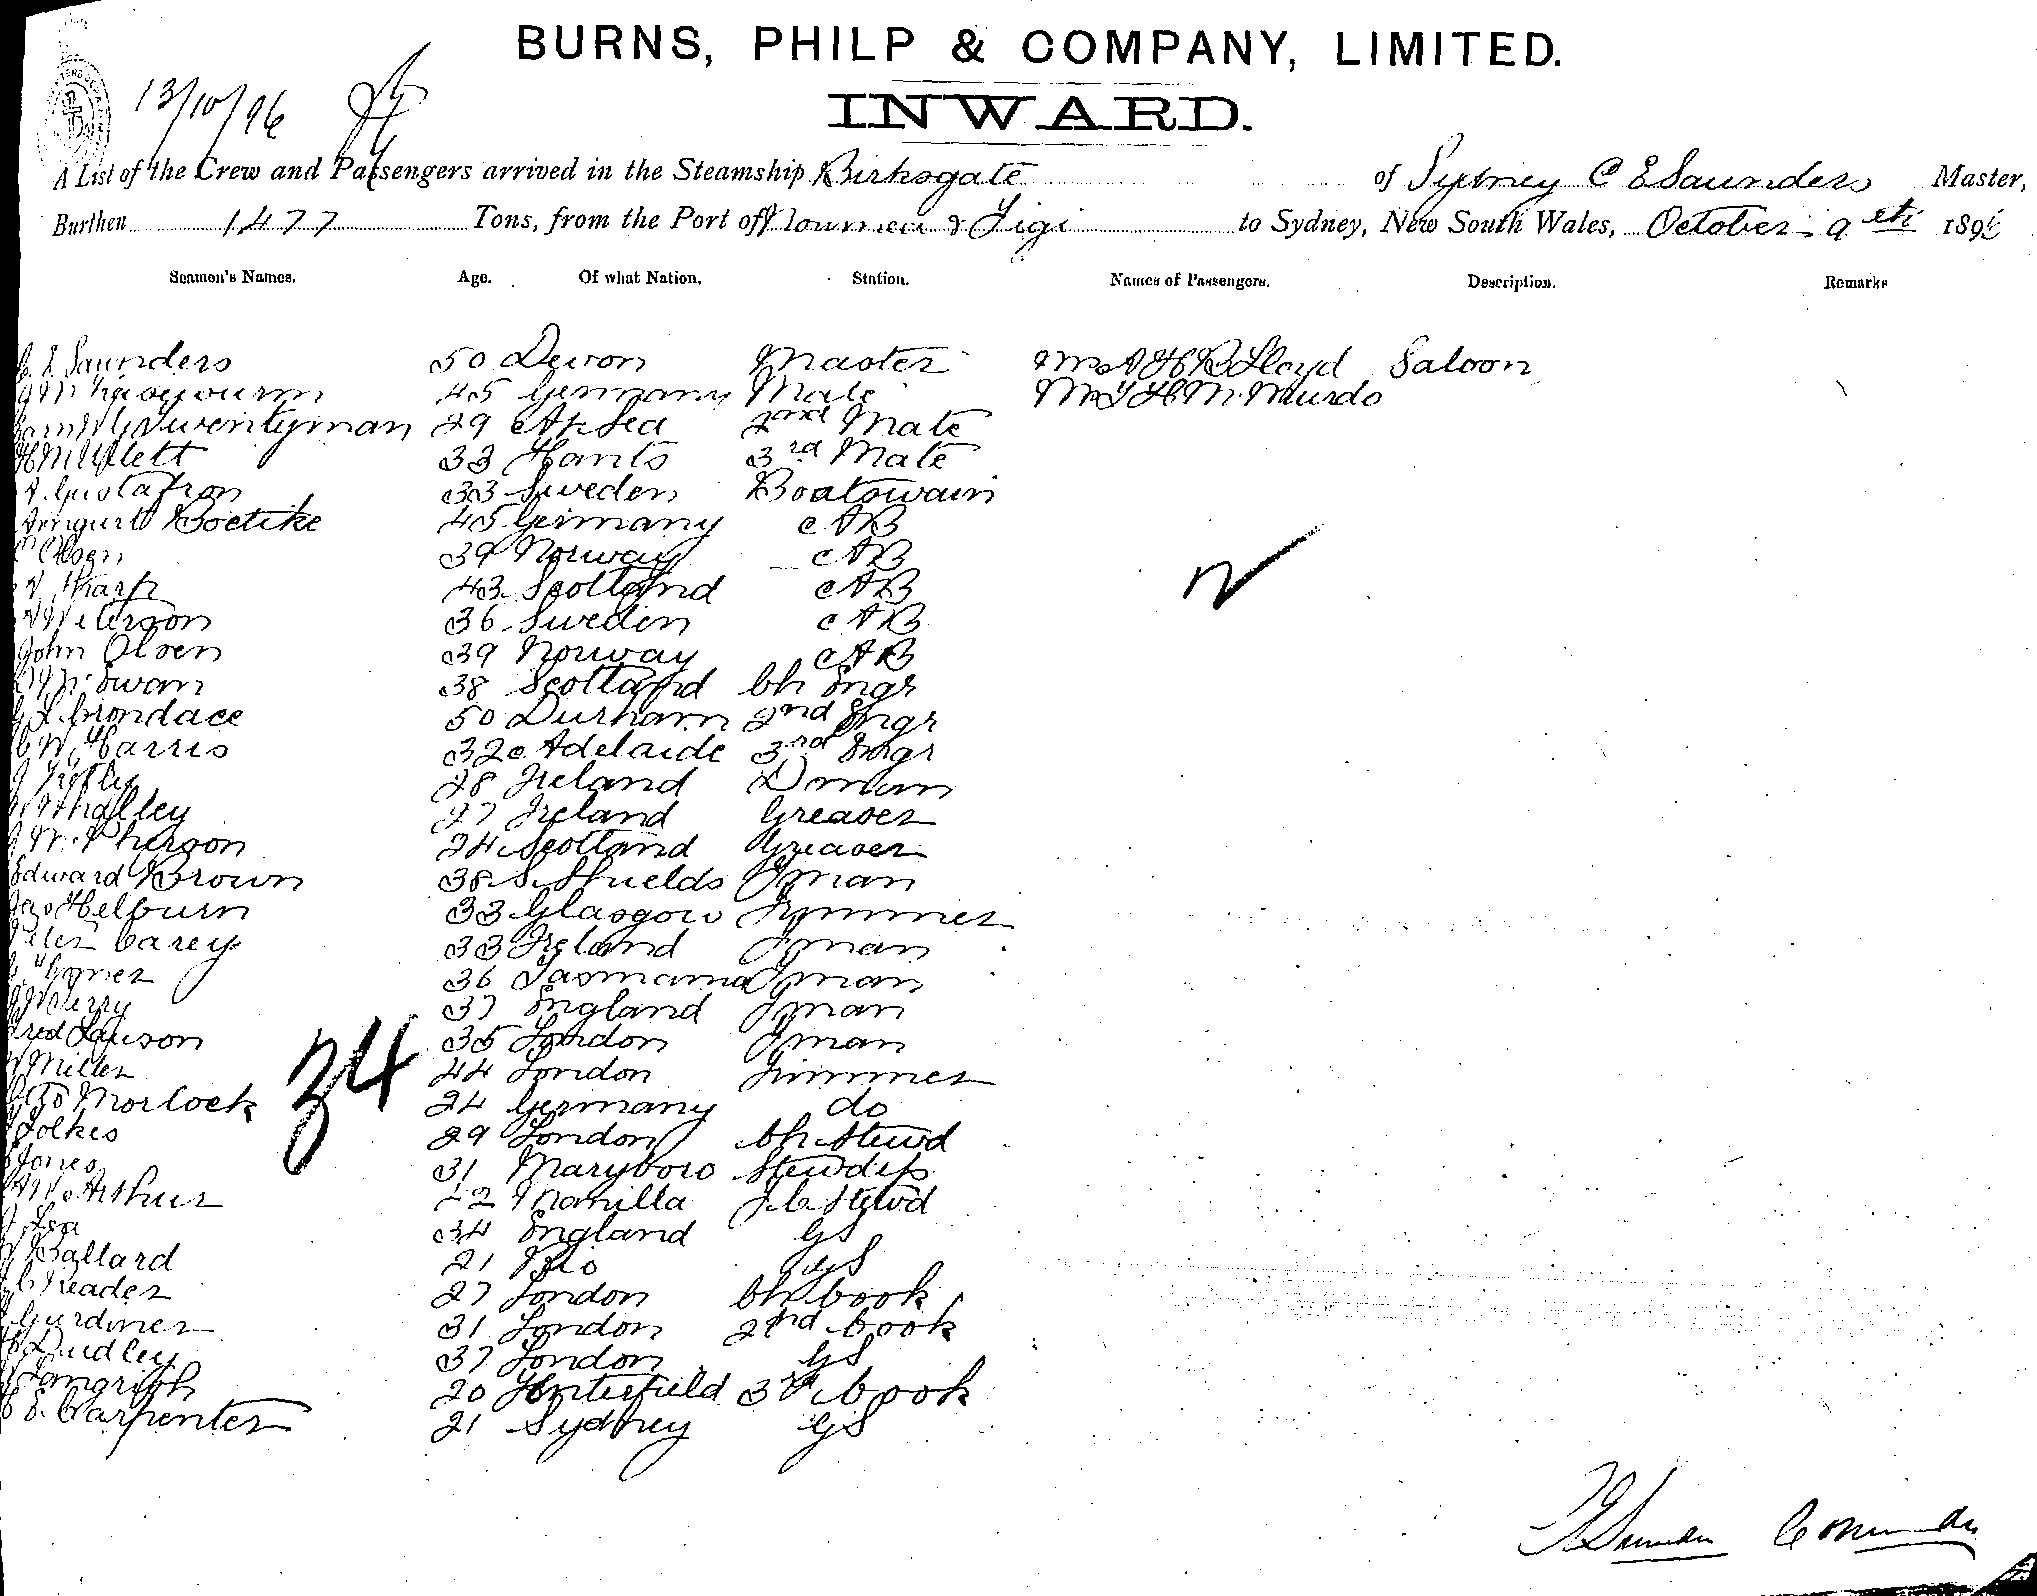 BURNS, PHILP & COMPANY, LIMITED.
13/10/96
INWARD.
A List of the Crew and Passengers arrived in the Steamship Birksgate of Sydney C E Saunders Master,
Burthen 1477 Tons, from the Port of Noumea & Figi to Sydney, New South Wales, October 9th 1896
Seamen's Names. Age. Of what Nation. Station. Names of Passengers. Description. Remarks
C. E. Saunders 50 Devon Master Mr A H B Lloyd Saloon
45 Germany Mate Mr J H McMurdo
Twentyman 29 At Sea 2nd Mate
33 Hants 3rd Mate
A. Gustafson 33 Sweden Boatswain
August Boetike 45 Germany AB
C Olsen 39 Norway AB
Sharp 43 Scotland AB
Peterson 36 Sweden AB
John Olsen 39 Norway AB
McEwan 38 Scotland Ch Engr
Crondace 50 Durham 2nd Engr
C W Harris 32 Adelaide 3rd Engr
28 Ireland Dman
Whalley 27 Ireland Greaser
J McPherson 24 Scotland Greaser
Edward Brown 38 S. Shields Fman
Jas Helburn 33 Glasgow Trimmer
Peter Carey 33 Ireland Fman
36 Tasmania Fman
Merry 37 England Fman
Fred Lawson 35 London Fman
W Miller 44 London Trimmer
Otto Morlock 24 Germany do
Folkes 29 London Ch Stewd
Jones 31 Maryboro Stewdess
McArthur 42 Manilla F.C. Stewd
Lea 34 England GS
Ballard 21 Rio GS
C Reader 27 London Ch Cook
Gardiner 31 London 2nd Cook
Dudley 37 London GS
Langrish 20 Tenterfield 3rd Cook
E. Carpenter 21 Sydney GS
34
C E Saunders Commander